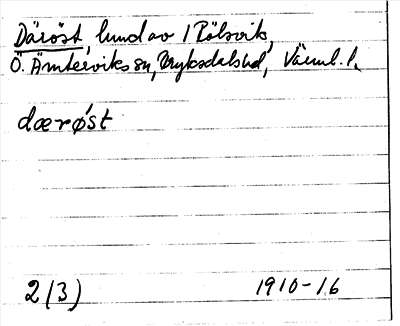 Däröst, lund av 1 Rölsvik,
Ö. Ämterviks sn, Fryksdals hd, Värml. l.
dærǿst
2(3) 1910-16